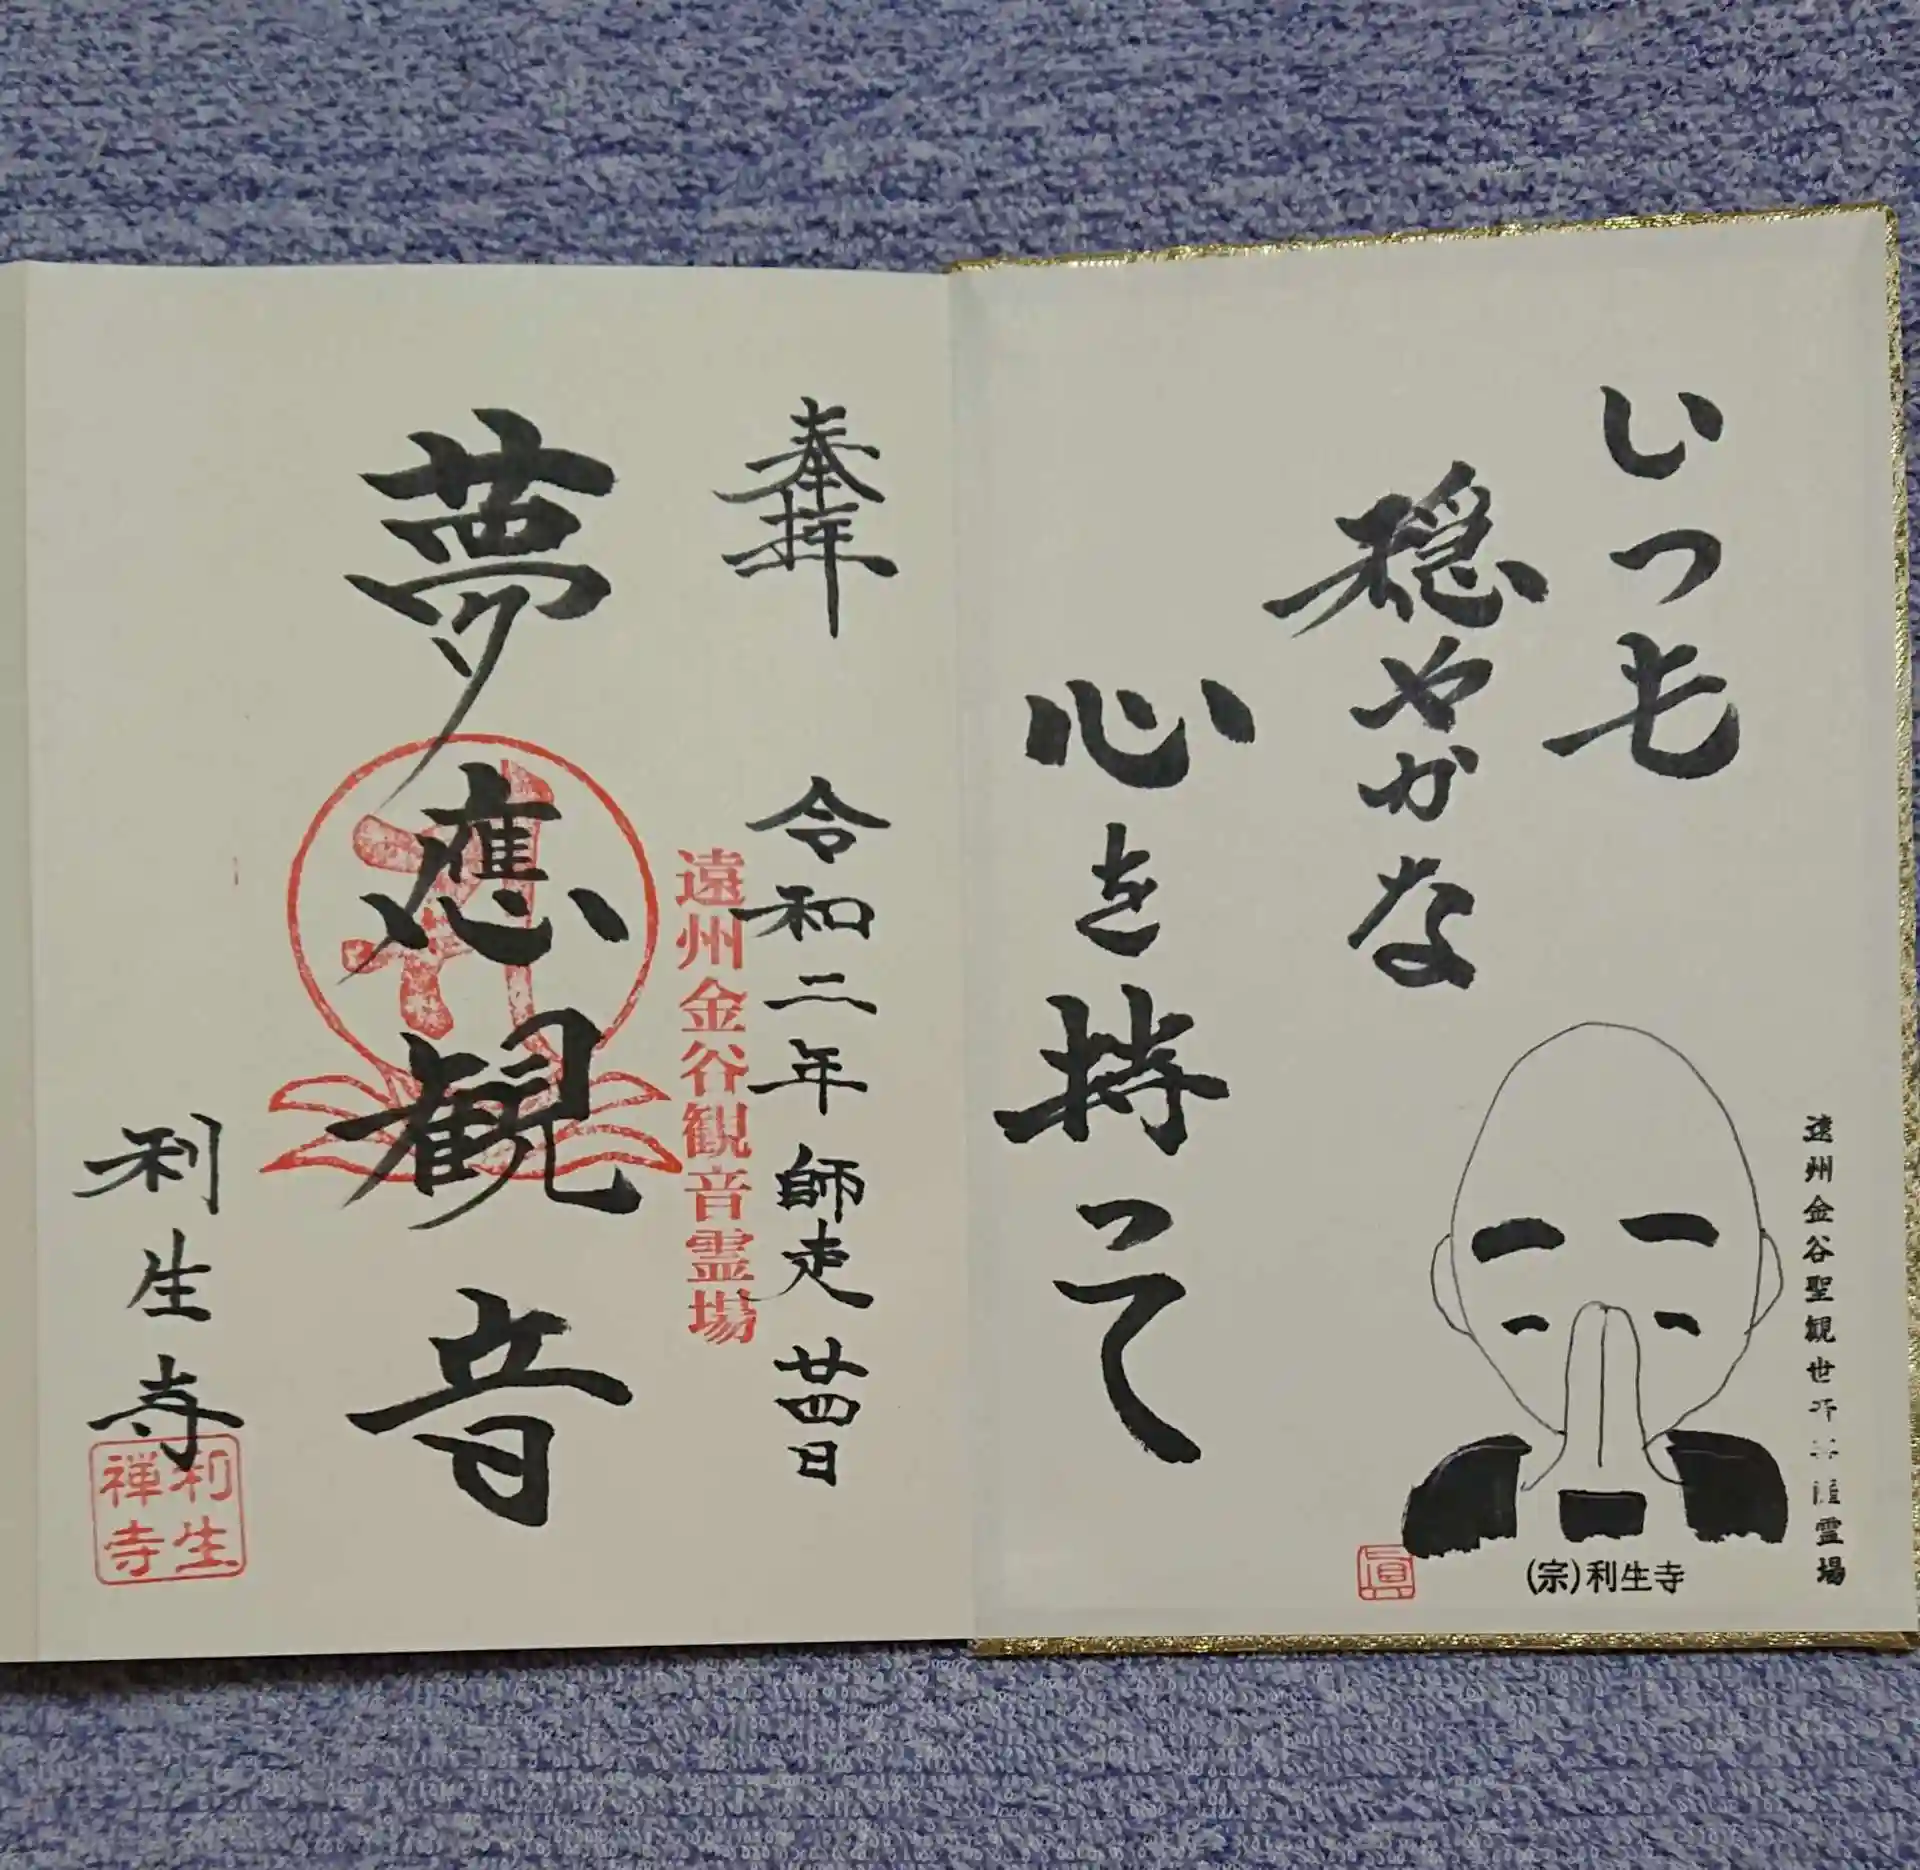 いつも
穏やかな
心を持って
遠州金谷聖観世
霊場
(宗)利生寺
奉拝
令和二年師走廿四日
遠州金谷観音霊場
夢應観音
利生寺
利生
禅寺